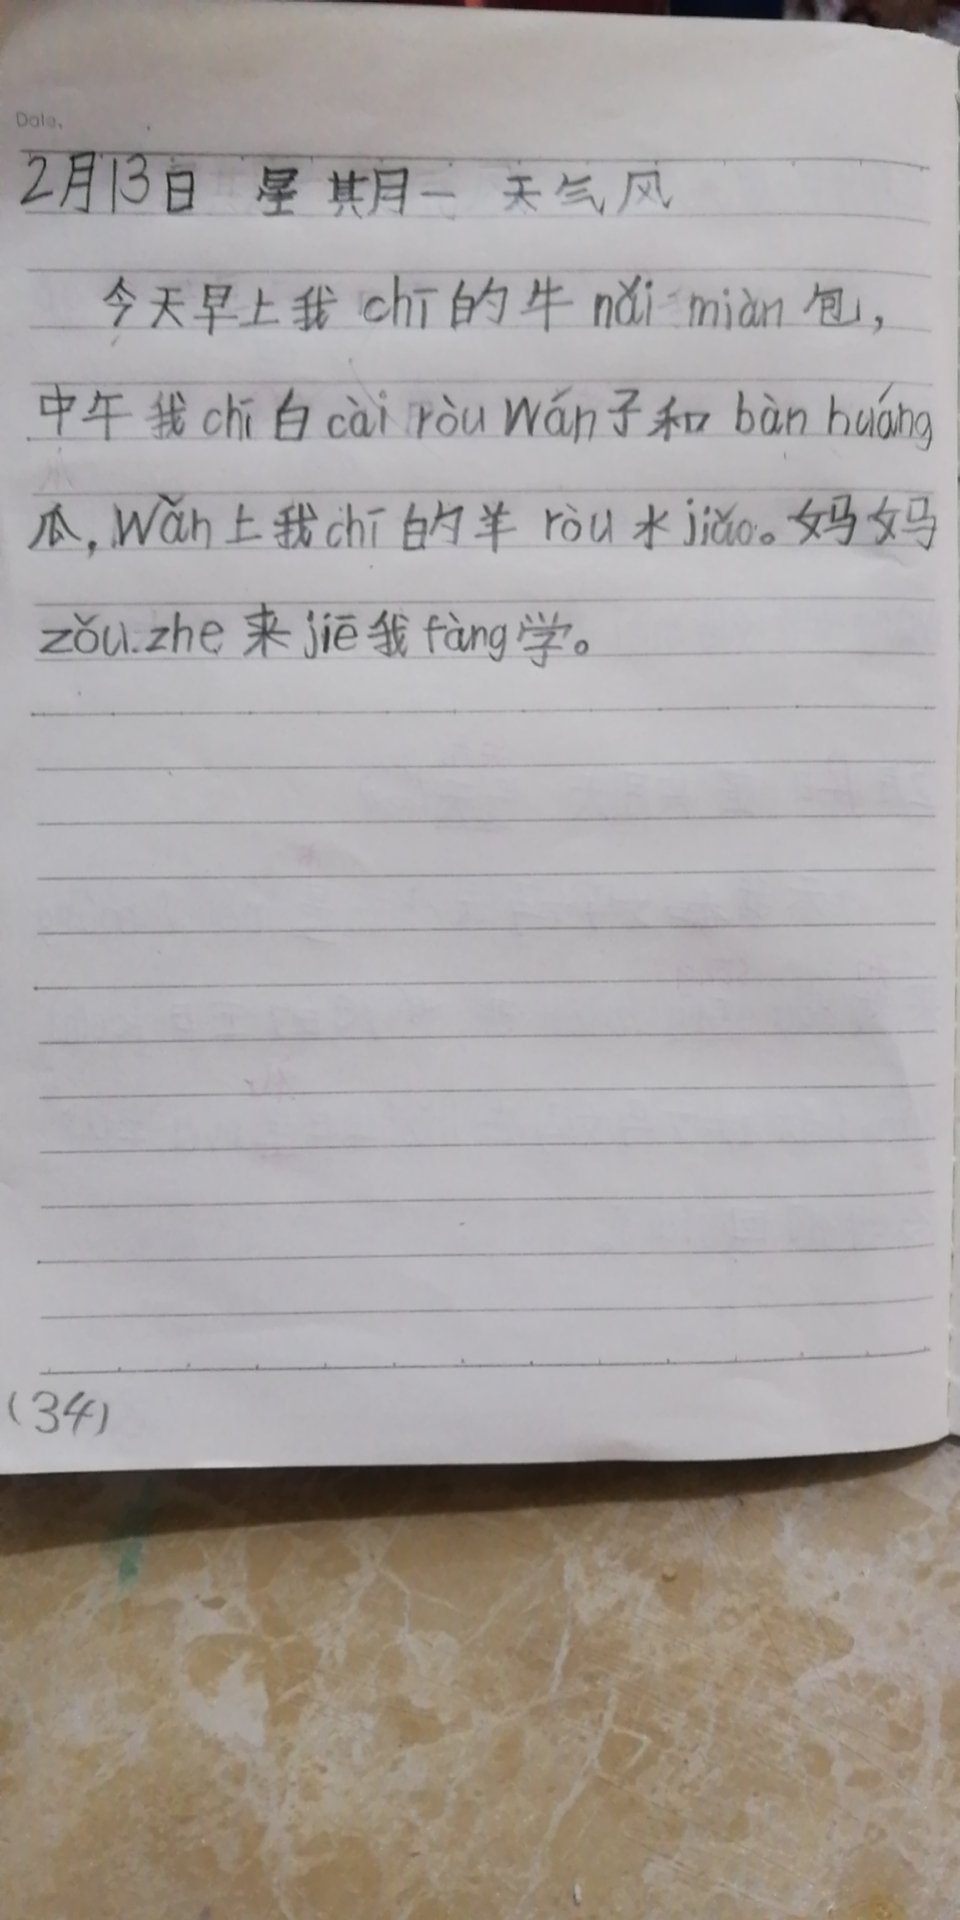 Date.
2月13日 星期一 天气风
今天早上我chī的牛nǎi miàn包,
中午我chī白cài ròu wán子和bàn huáng
瓜,wǎn上我chī的羊ròu水jiǎo。妈妈
zǒu zhe来jiē我fàng学。
(34)